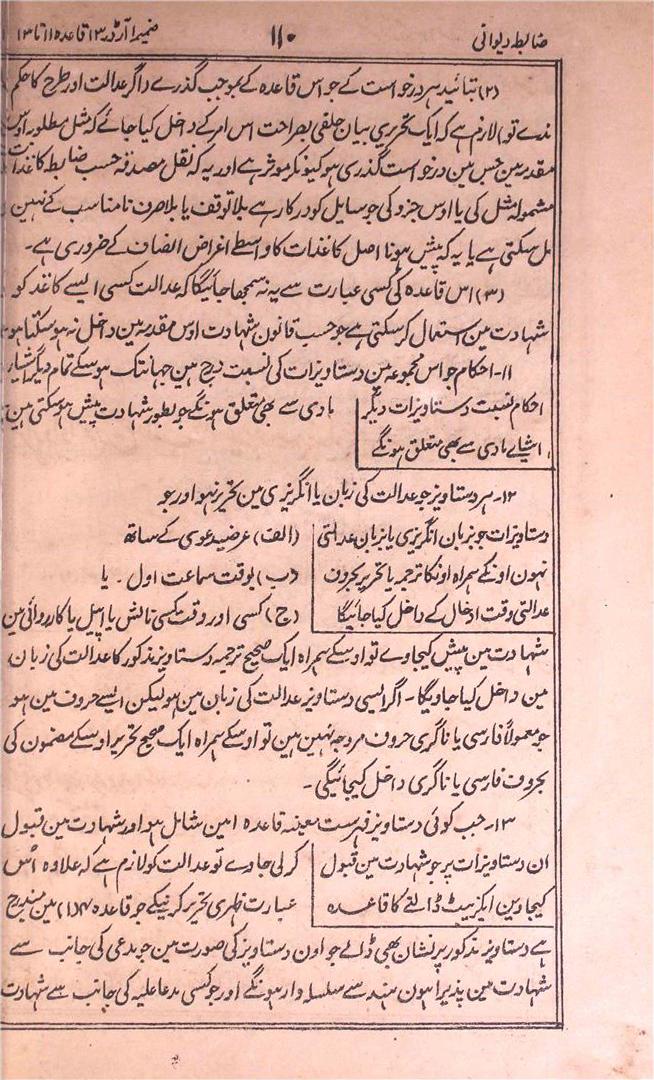 ضابطہ دیوانی ۱۱۰ ضمیمہ آرڈر ۱۳ قاعدہ ۱۱ تا ۱۳
(۲) بتائید ہر درخواست کے جو اس قاعدہ کے بموجب گذرے (اگر عدالت اور طرح کا حکم
ندے تو) لازم ہے کہ ایک تحریری بیان حلفی بصراحت اس امر کے داخل کیا جائے کہ مثل مطلوبہ اوس
مقدمہ مین جس مین درخواست گذری ہو کیونکر موثر ہے اور یہ کہ نقل مصدقہ حسب ضابطہ کاغذات
مشمولہ مثل کی یا اوس جزو کی جو سایل کو درکار ہے بلا توقف یا بلا صرف نامناسب کے نہین
مل سکتی ہے یا یہ کہ پیش ہونا اصل کاغذات کا واسطے اغراض انصاف کے ضروری ہے۔
(۳) اس قاعدہ کی کسی عبارت سے یہ نہ سمجھا جائیگا کہ عدالت کسی ایسے کاغذ کو
شہادت مین استعمال کرسکتی ہے جو حسب قانون شہادت اوس مقدمہ مین داخل نہ ہوسکتا ہو
۱۱- احکام جو اس مجموعہ مین دستاویزات کی نسبت درج ہین جہانتک ہوسکے تمام دیگر اشیاء
احکام نسبت دستاویزات دیگر مادی سے بھی متعلق ہونگے جو بطور شہادت پیش ہوسکتی ہین
اشیاے مادی سے بھی متعلق ہونگے
۱۲- ہر دستاویز جو عدالت کی زبان یا انگریزی مین تحریر نہو اور جو
دستاویزات جو بزبان انگریزی یا بزبان عدالتی (الف) عرضیدعوی کے ساتھ
نہون اونکے ہمراہ اونکا ترجمہ یا تحریر بحروف (ب) بوقت سماعت اول۔ یا
عدالتی وقت ادخال کے داخل کیا جائیگا (ج) کسی اور وقت کسی نالش یا اپیل یا کارروائی مین
شہادت مین پیش کیجاوے تو اوسکے ہمراہ ایک صحیح ترجمہ دستاویز مذکور کا عدالت کی زبان
مین داخل کیا جاویگا۔ اگر ایسی دستاویز عدالت کی زبان مین ہو لیکن ایسے حروف مین ہو
جو معمولاً فارسی یا ناگری حروف مروجہ نہین ہین تو اوسکے ہمراہ ایک صحیح تحریر اوسکے مضمون کی
بحروف فارسی یا ناگری داخل کیجائیگی۔
۱۳- جب کوئی دستاویز فہرست معینہ قاعدہ مین شامل ہو اور شہادت مین قبول
ان دستاویزات پر جو شہادت مین قبول کرلی جاوے تو عدالت کو لازم ہے کہ علاوہ اُس
کیجاوین ایگزیبٹ ڈالنے کا قاعدہ عبارت ظہری تحریر کرنیکے جو قاعدہ ۴(۱) مین مندرج
ہے دستاویز مذکور پر نشان بھی ڈالے جو اون دستاویز کی صورت مین جو مدعی کی جانب سے
شہادت مین پذیرا ہون ہندسے سلسلہ وار ہونگے اور جو کسی مدعا علیہ کی جانب سے شہادت